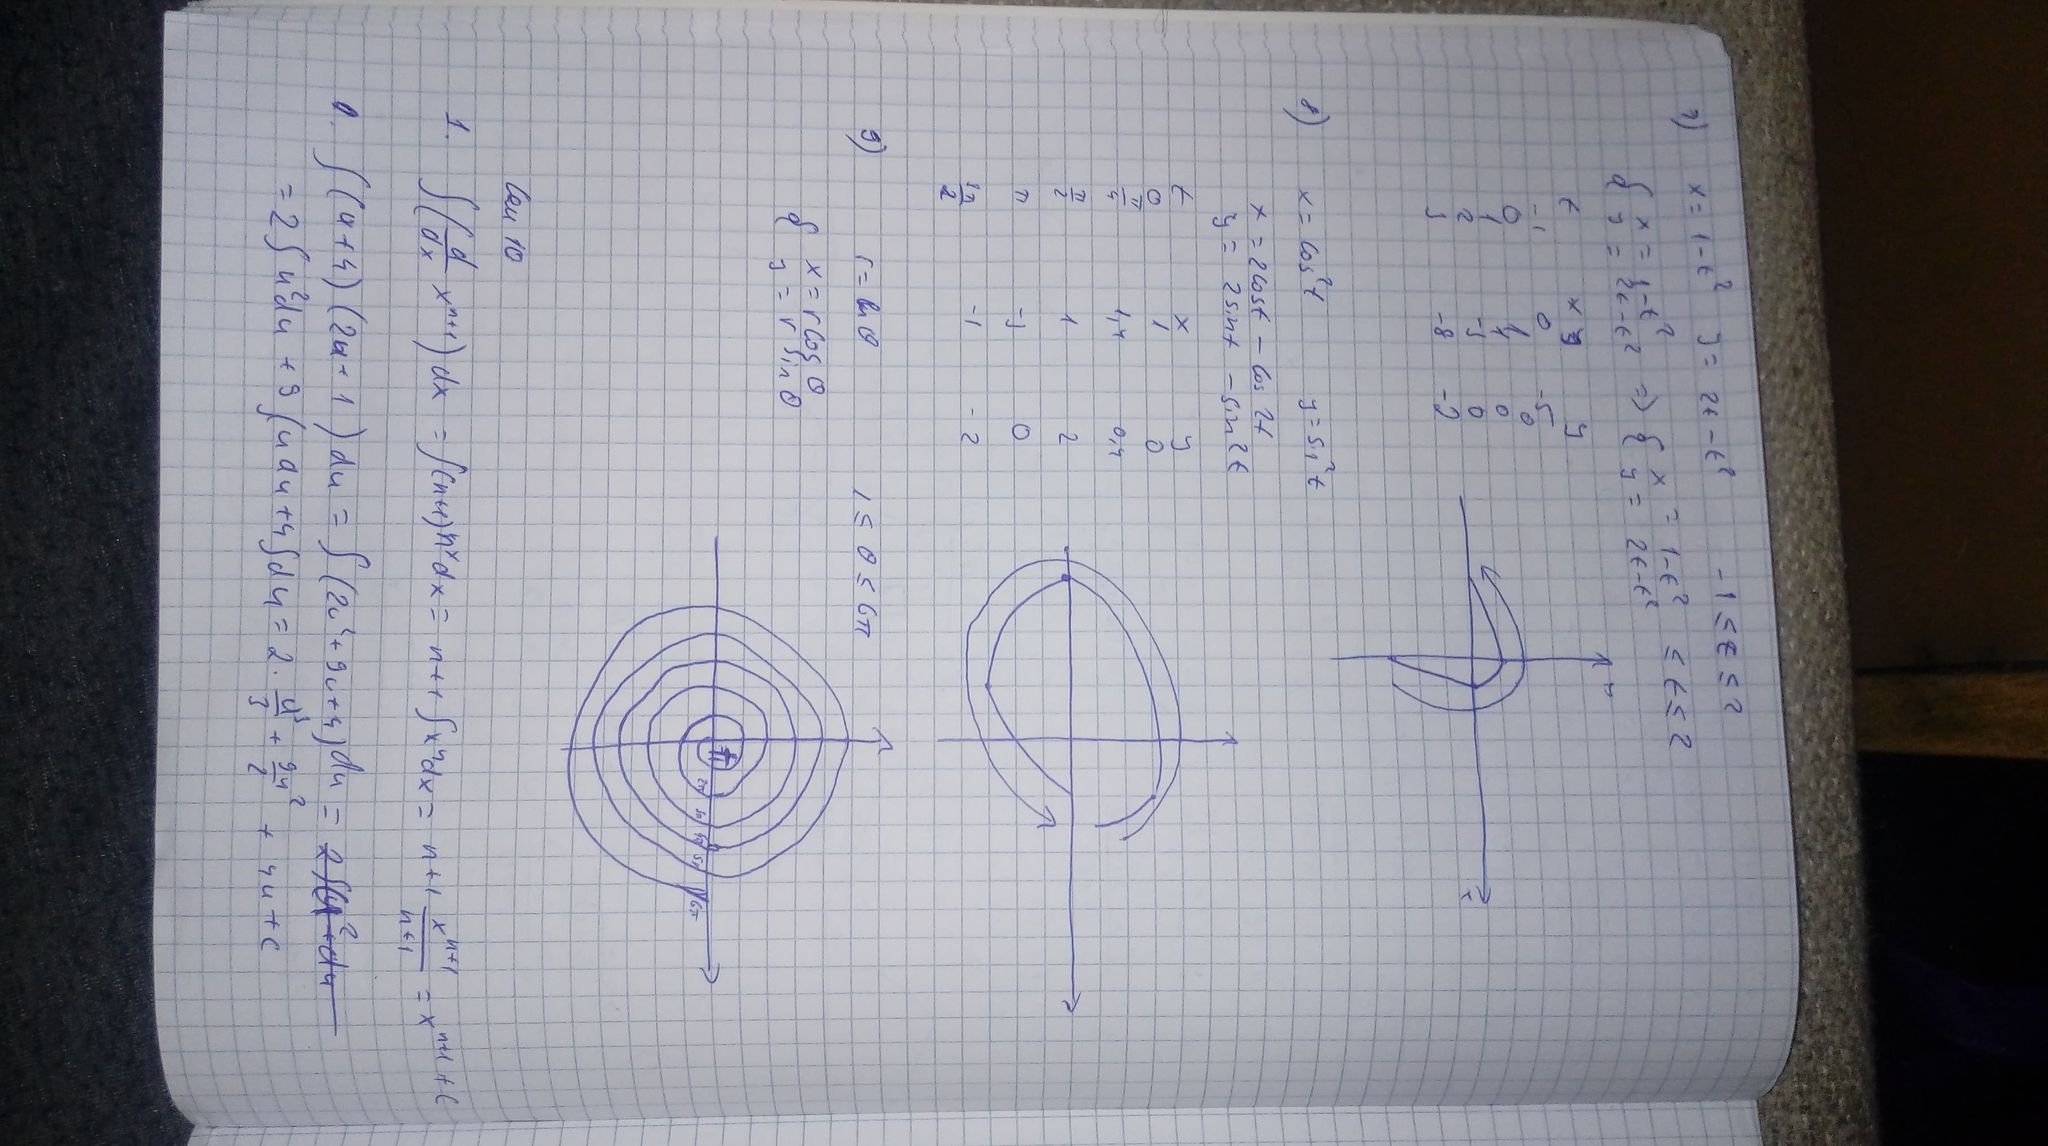 7) x = 1-t² y = 2t-t² -1 ≤ t ≤ 2
{ x = 1-t² y = 2t-t² => { x = 1-t² y = 2t-t² ≤ t ≤ 2
t x y
-1 0 -5
0 1 0
1 0
2 -3 0
3 -8 -2
8) x = cos²t y = sin²t
x = 2cost - cos 2t
y = 2sint - sin 2t
t x y
0 1 0
π/4 1,4 0,4
π/2 1 2
π -3 0
3π/2 -1 -2
9) r = ln θ 1 ≤ θ ≤ 6π
{ x = r cos θ
y = r sin θ
6π
10
1. ∫(d/dx x^(n+1))dx = ∫(n+1)x^n dx = n+1 ∫x^n dx = n+1 x^(n+1)/(n+1) = x^(n+1) + C
∫(u+4)(2u+1)du = ∫(2u²+9u+4)du =
= 2∫u²du + 9∫u du + 4∫du = 2·u³/3 + 9u²/2 + 4u + C